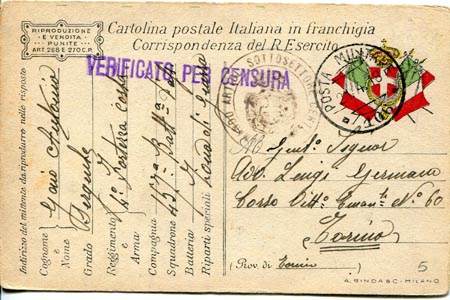 RIPRODUZIONE
E VENDITA
PUNITE
ART. 268 E 270 C.P.
Cartolina postale Italiana in franchigia
Corrispondenza del R. Esercito
VERIFICATO PER CENSURA
SOTTOSETTORE
POSTA MILITARE
Indirizzo del mittente da riprodurre nelle risposte
Cognome e Nome
Grado Sergente
Reggimento e Arma 4° Fortezza Costa
Compagnia Squadrone Batteria 457ª Batt
Riparti speciali Zona di Guerra
Al Gent. Signor
Avv. Luigi Germano
Corso Vitt° Eman. N° 60
Torino
(Prov. di Torino)
5
A. BINDA & C - MILANO